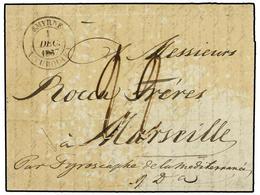 SMYRNE
1
DEC.
Messieurs
Rocca Frères
à Marseille
Par Pyroscaphe de la mediterranée